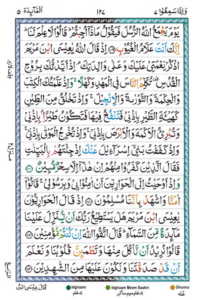 وَاِذَا سَمِعُوْا ٧ ١٢٧ اَلْمَآئِدَة ٥
يَوْمَ يَجْمَعُ اللّٰهُ الرُّسُلَ فَيَقُوْلُ مَاذَآ اُجِبْتُمْ قَالُوْا لَا عِلْمَ لَنَا
اِنَّكَ اَنْتَ عَلَّامُ الْغُيُوْبِ اِذْ قَالَ اللّٰهُ يٰعِيْسَى ابْنَ مَرْيَمَ
اذْكُرْ نِعْمَتِيْ عَلَيْكَ وَعَلٰى وَالِدَتِكَ اِذْ اَيَّدْتُّكَ بِرُوْحِ
الْقُدُسِ تُكَلِّمُ النَّاسَ فِي الْمَهْدِ وَكَهْلًا وَاِذْ عَلَّمْتُكَ الْكِتٰبَ
وَالْحِكْمَةَ وَالتَّوْرٰىةَ وَالْاِنْجِيْلَ وَاِذْ تَخْلُقُ مِنَ الطِّيْنِ
كَهَيْـَٔةِ الطَّيْرِ بِاِذْنِيْ فَتَنْفُخُ فِيْهَا فَتَكُوْنُ طَيْرًا بِاِذْنِيْ
وَتُبْرِئُ الْاَكْمَهَ وَالْاَبْرَصَ بِاِذْنِيْ وَاِذْ تُخْرِجُ الْمَوْتٰى بِاِذْنِيْ
وَاِذْ كَفَفْتُ بَنِيْٓ اِسْرَآءِيْلَ عَنْكَ اِذْ جِئْتَهُمْ بِالْبَيِّنٰتِ
فَقَالَ الَّذِيْنَ كَفَرُوْا مِنْهُمْ اِنْ هٰذَآ اِلَّا سِحْرٌ مُّبِيْنٌ
وَاِذْ اَوْحَيْتُ اِلَى الْحَوَارِيّٖنَ اَنْ اٰمِنُوْا بِيْ وَبِرَسُوْلِيْ قَالُوْٓا
اٰمَنَّا وَاشْهَدْ بِاَنَّنَا مُسْلِمُوْنَ اِذْ قَالَ الْحَوَارِيُّوْنَ
يٰعِيْسَى ابْنَ مَرْيَمَ هَلْ يَسْتَطِيْعُ رَبُّكَ اَنْ يُّنَزِّلَ عَلَيْنَا
مَآئِدَةً مِّنَ السَّمَآءِ قَالَ اتَّقُوا اللّٰهَ اِنْ كُنْتُمْ مُّؤْمِنِيْنَ
قَالُوْا نُرِيْدُ اَنْ نَّاْكُلَ مِنْهَا وَتَطْمَئِنَّ قُلُوْبُنَا وَنَعْلَمَ
اَنْ قَدْ صَدَقْتَنَا وَنَكُوْنَ عَلَيْهَا مِنَ الشّٰهِدِيْنَ
Idgham Idgham Meem Saakin Ghunna